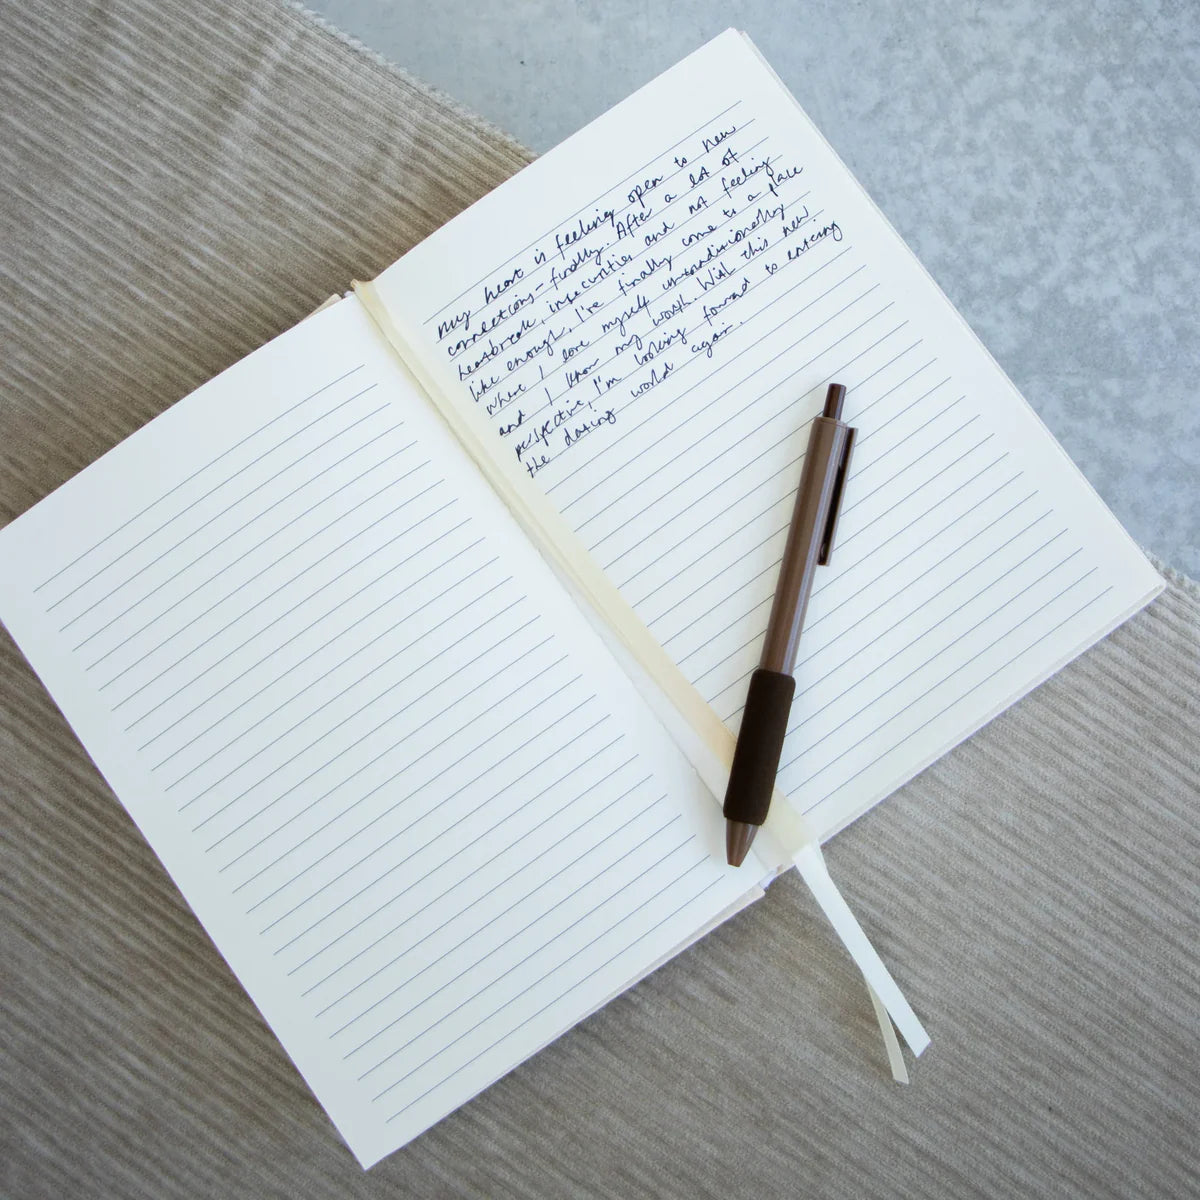 My heart is feeling open to new
connections - finally. After a lot of
heartbreak, insecurities, and not feeling
like enough, I've finally come to a place
where I love myself unconditionally
and I know my worth. With this new
perspective, I'm looking forward to entering
the dating world again.